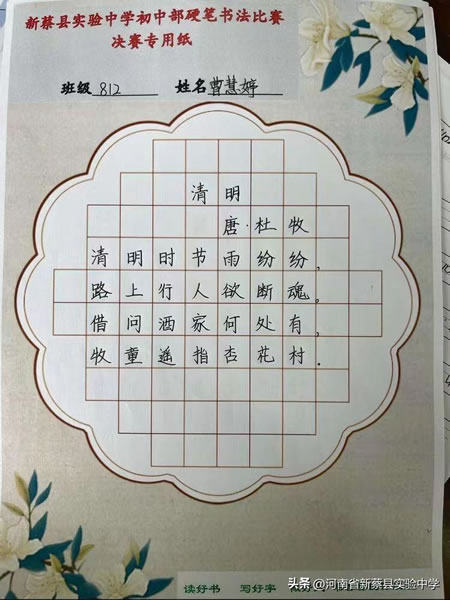 新蔡县实验中学初中部硬笔书法比赛
决赛专用纸
班级 812 姓名 曹慧婷
清明
唐·杜牧
清明时节雨纷纷，
路上行人欲断魂。
借问酒家何处有，
牧童遥指杏花村.
读好书 写好字
头条 @河南省新蔡县实验中学